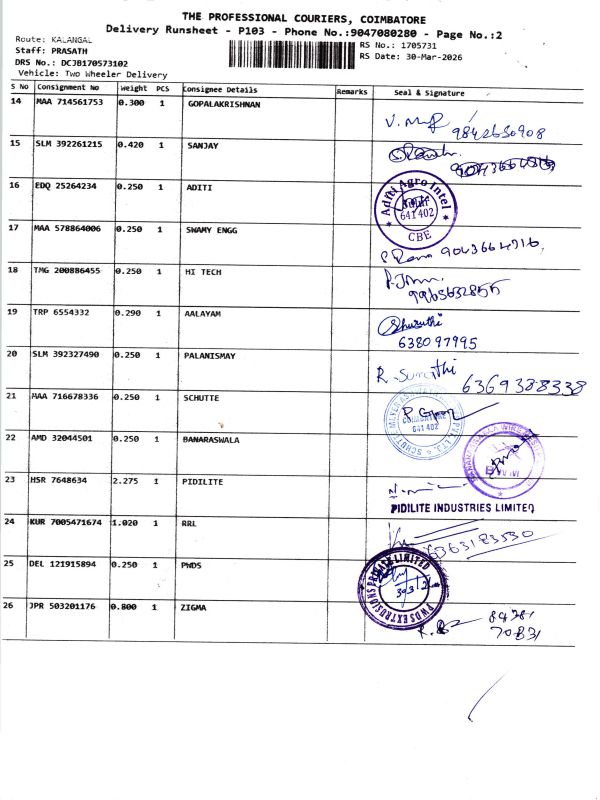 THE PROFESSIONAL COURIERS, COIMBATORE
Delivery Runsheet - P103 - Phone No.:9047080280 - Page No.:2
Route: KALANGAL
RS No.: 1705731
Staff: PRASATH
RS Date: 30-Mar-2026
DRS No.: DCJB170573102
Vehicle: Two Wheeler Delivery
S No Consignment No Weight PCS Consignee Details Remarks Seal & Signature
14 MAA 714561753 0.300 1 GOPALAKRISHNAN
9842650908
15 SLM 392261215 0.420 1 SANJAY
16 EDQ 25264234 0.250 1 ADITI
Aditi Agro Intel
641 402
CBE
17 MAA 578864006 0.250 1 SWAMY ENGG
9043664716
18 TMG 200886455 0.250 1 HI TECH
9965632855
19 TRP 6554332 0.290 1 AALAYAM
Shuruthi
638097995
20 SLM 392327490 0.250 1 PALANISMAY
R. Sumathi
6369388338
21 MAA 716678336 0.250 1 SCHUTTE
COIMBATORE
641 402
22 AMD 32044501 0.250 1 BANARASWALA
23 HSR 7648634 2.275 1 PIDILITE
PIDILITE INDUSTRIES LIMITED
24 KUR 7005471674 1.020 1 RRL
6363183530
25 DEL 121915894 0.250 1 PWDS
PWDS EXTRUSIONS PRIVATE LIMITED
26 JPR 503201176 0.800 1 ZIGMA
84381
70831